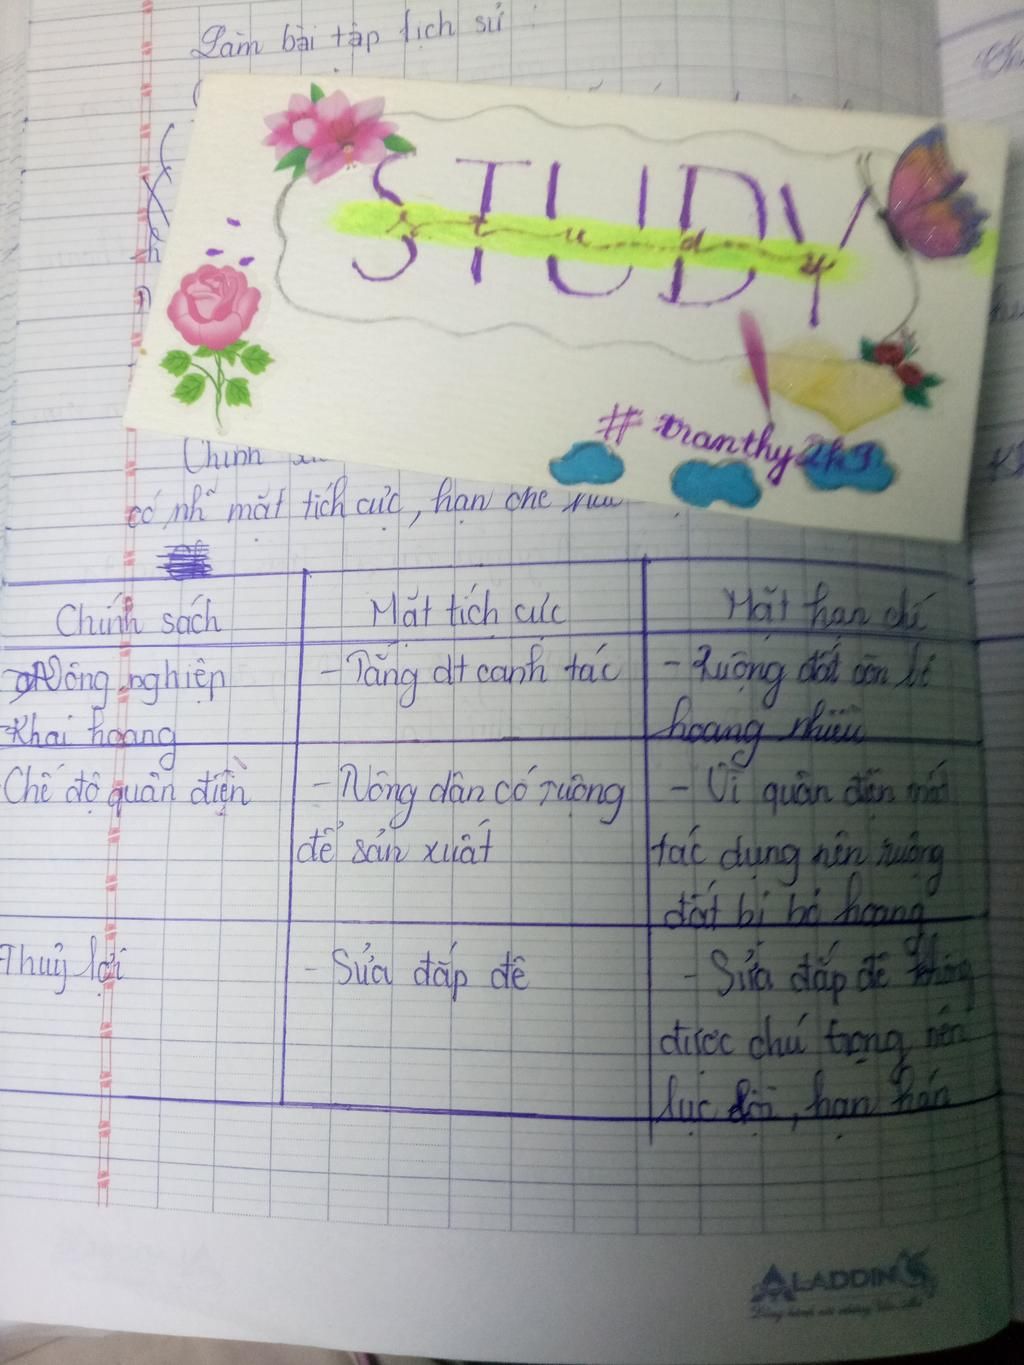 Làm bài tập lịch sử :
STUDY
study
# tranthy2k9
Chính
có nhữ mặt tích cực, hạn chế
Chính sách
Mặt tích cực
Mặt hạn chế
Nông nghiệp
Khai hoang
- Tăng dt canh tác
- Ruộng đất còn bỏ
hoang nhiều
Chế độ quân điền
- Nông dân có ruộng
để sản xuất
- Vì quân điền mất
tác dụng nên ruộng
đất bị bỏ hoang
Thuỷ lợi
- Sửa đắp đê
- Sửa đắp đê không
được chú trọng nên
lục lội, hạn hán
ALADDIN